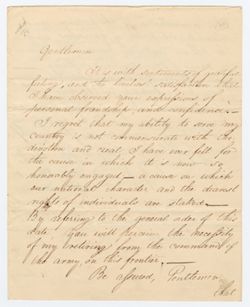 Gentlemen
It is with sentiments of grateful
feeling, and to
I have observed your expressions of
personal friendship and confidence.—
I regret that my ability to serve my
country is not commensurate with the
devotion and zeal, I have ever felt for
the cause in which it is now so
honorably engaged — a cause on which
our national character and the dearest
rights of individuals are staked.—
By referring to the general order of this
date. You will perceive the necessity
of my retiring from the command of
the army, on this frontier.—
Be assured, Gentlemen
that